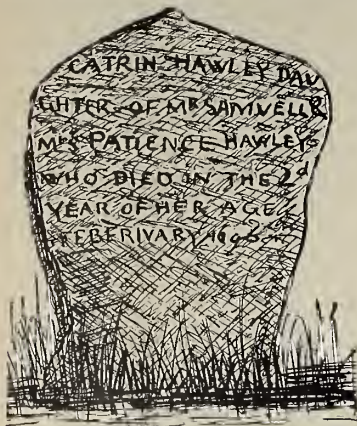 CATRIN HAWLEY DAU
GHTER OF MR SAMVELL &
MRS PATIENCE HAWLEY
WHO DIED IN THE 2d
YEAR OF HER AGE
FEBERIVARY